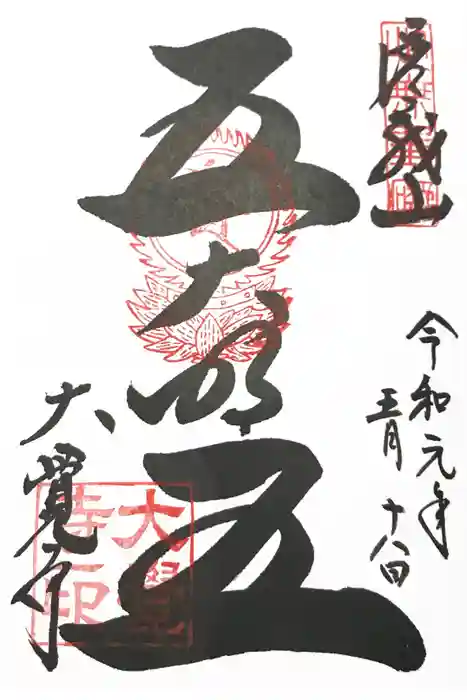 嵯峨山
五大明王
令和元年
五月十八日
大覺寺
大覺
寺之印